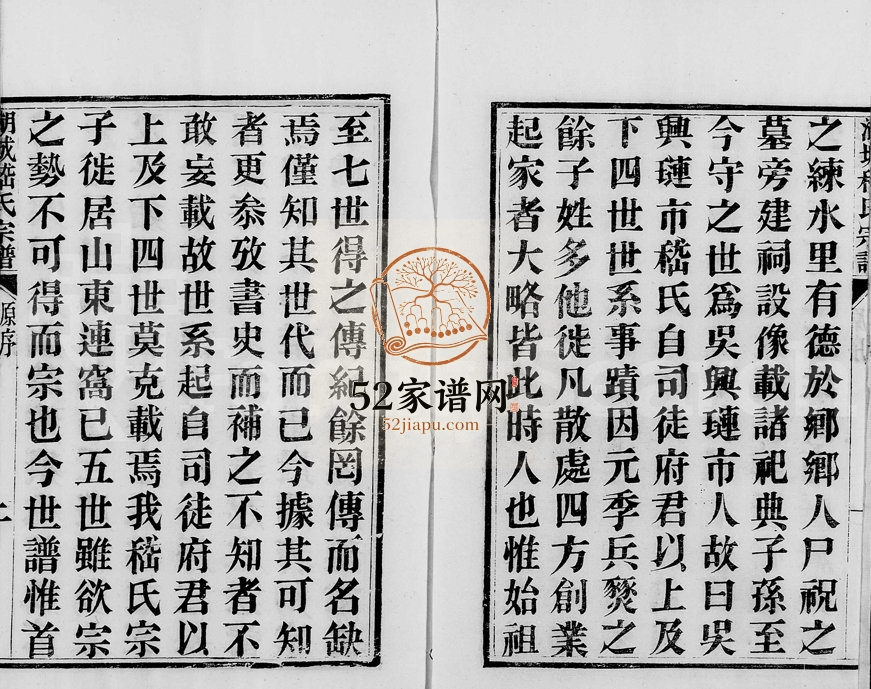 之練水里有德於鄉鄉人尸祝之
墓旁建祠設像載諸祀典子孫至
今守之世爲吳興璉市人故曰吳
興璉市嵇氏自司徒府君以上及
下四世世系事蹟因元季兵燹之
餘子姓多他徙凡散處四方創業
起家者大略皆此時人也惟始祖
至七世得之傳紀餘罔傳而名缺
焉僅知其世代而已今據其可知
者更叅攷書史而補之不知者不
敢妄載故世系起自司徒府君以
上及下四世莫克載焉我嵇氏宗
子徙居山東連窩已五世雖欲宗
之勢不可得而宗也今世譜惟首
嵇氏宗譜
原序
52家谱网
52jiapu.com